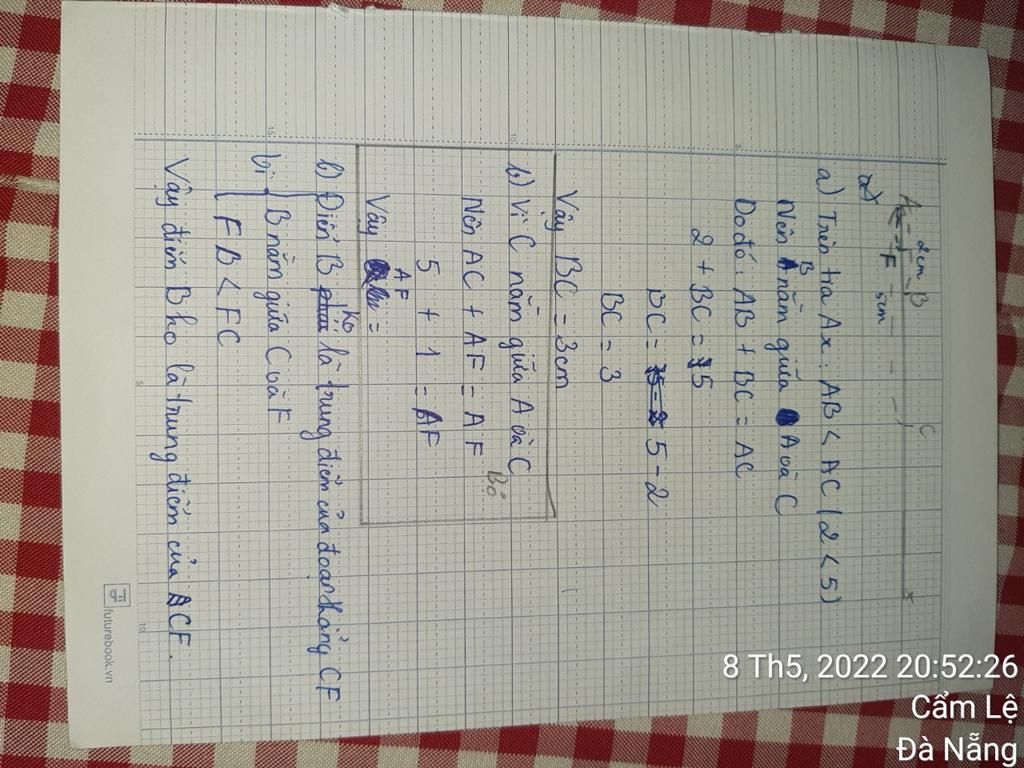 A 2cm B C x
F 5cm
a)
a) Trên tia Ax: AB < AC (2 < 5)
Nên B nằm giữa A và C
Do đó: AB + BC = AC
2 + BC = 5
BC = 5 - 2
BC = 3
Vậy BC = 3cm
b) Vì C nằm giữa A và C
Bỏ
Nên AC + AF = AF
5 + 1 = AF
Vậy AF =
b) Điểm B ko là trung điểm của đoạn thẳng CF
bì { B nằm giữa C và F
FB < FC
Vậy điểm B ko là trung điểm của CF.
futurebook.vn
5
10
15
5
10
8 Th5, 2022 20:52:26
Cẩm Lệ
Đà Nẵng